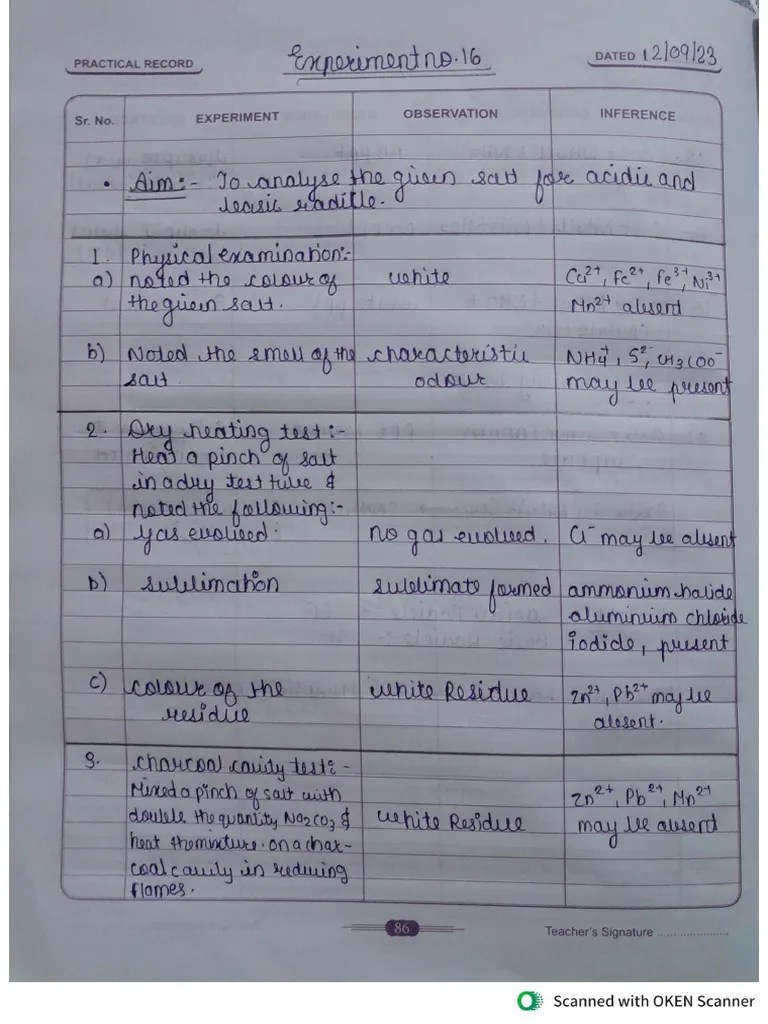 PRACTICAL RECORD
Experiment no. 16
DATED 12/09/23
Sr. No. EXPERIMENT OBSERVATION INFERENCE
• Aim:- To analyse the given salt for acidic and
basic radicle.
1. Physical examination:-
a) noted the colour of white Cu2+, Fe2+, Fe3+, Ni3+
the given salt. Mn2+ absend
b) Noted the smell of the characteristic NH4+, S2-, CH3COO-
salt. odour may be present
2. Dry heating test:-
Heat a pinch of salt
in a dry test tube &
noted the following:-
a) gas evolved. no gas evolved. Cl- may be absent
b) sublimation sublimate formed ammonium halide
aluminium chloride
iodide, present
c) colour of the white Residue Zn2+, Pb2+ may be
residue absent.
3. charcoal cavity test:-
Mixed a pinch of salt with Zn2+, Pb2+, Mn2+
double the quantity Na2CO3 & white Residue may be absend
heat the mixture. on a char-
coal cavity in reducing
flames.
86
Teacher's Signature ....................
Scanned with OKEN Scanner